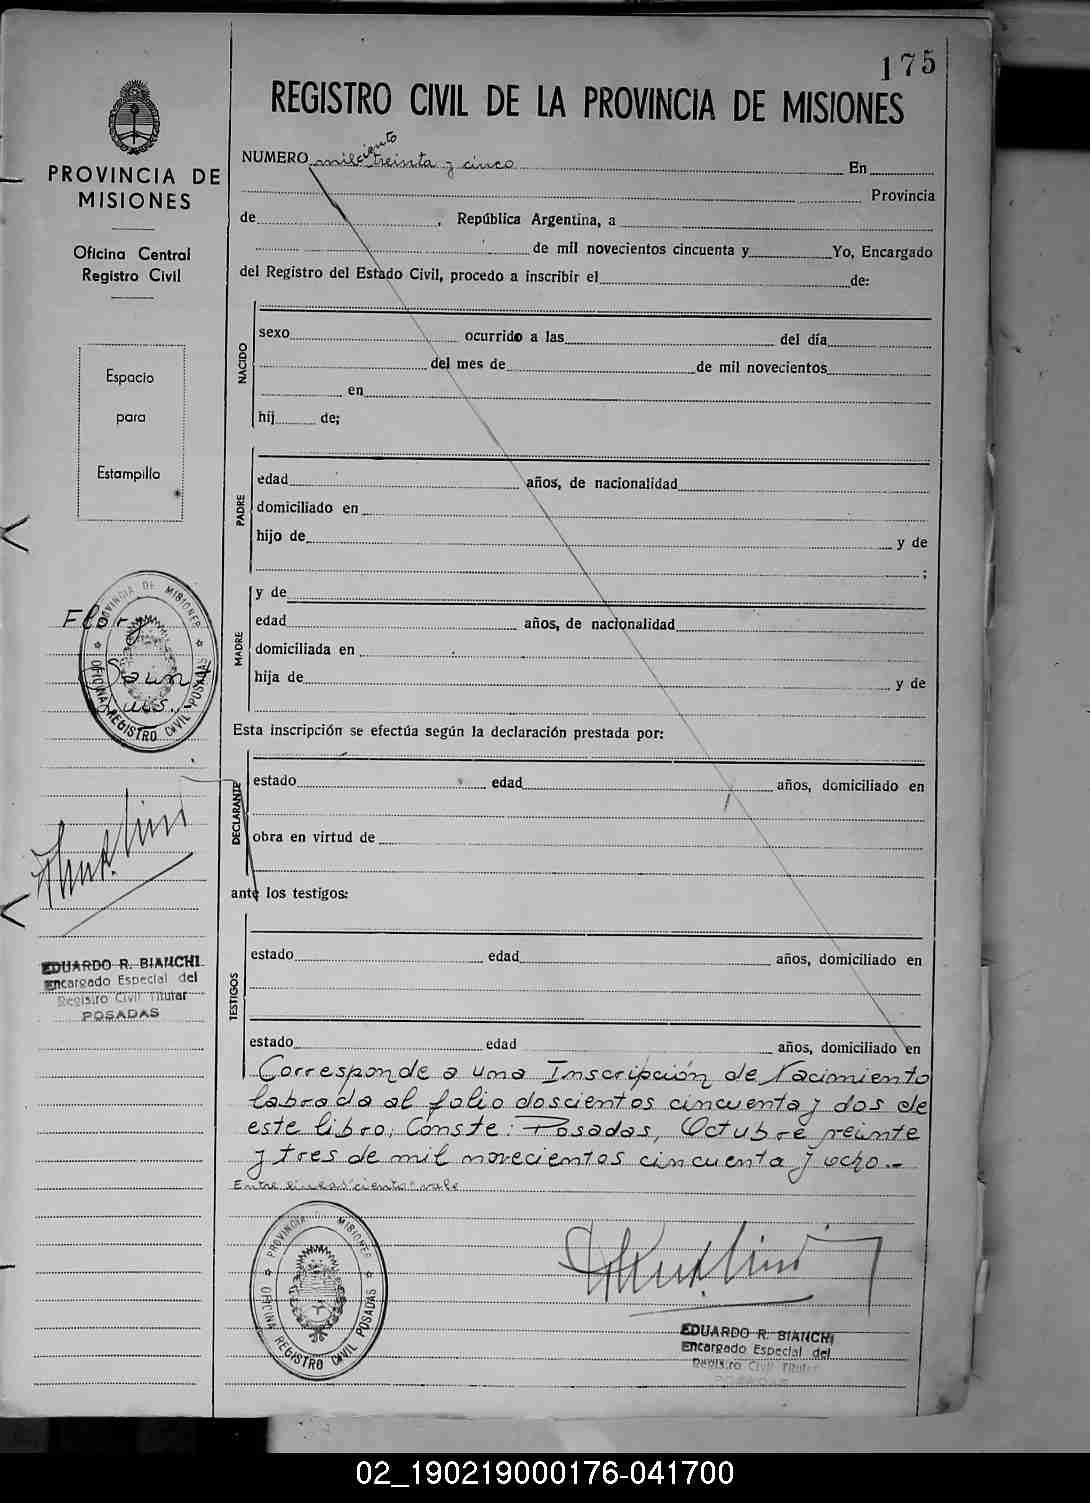 175
REGISTRO CIVIL DE LA PROVINCIA DE MISIONES
PROVINCIA DE
MISIONES
Oficina Central
Registro Civil
Espacio
para
Estampilla
ciento
NUMERO mil treinta y cinco En
Provincia
de , República Argentina, a
de mil novecientos cincuenta y Yo, Encargado
del Registro del Estado Civil, procedo a inscribir el de:
NACIDO
sexo ocurrido a las del día
del mes de de mil novecientos
en
hij de;
PADRE
edad años, de nacionalidad
domiciliado en
hijo de y de
;
y de
MADRE
edad años, de nacionalidad
domiciliada en
hija de y de
Esta inscripción se efectúa según la declaración prestada por:
DECLARANTE
estado edad años, domiciliado en
obra en virtud de
ante los testigos:
TESTIGOS
estado edad años, domiciliado en
estado edad años, domiciliado en
Corresponde a una Inscripción de Nacimiento
labrada al folio doscientos cincuenta y dos de
este libro; Conste: Posadas, Octubre veinte
y tres de mil novecientos cincuenta y ocho.-
Entre lineas "ciento" vale
PROVINCIA DE MISIONES
OFICINA REGISTRO CIVIL POSADAS
EDUARDO R. BIANCHI
Encargado Especial del
Registro Civil Titular
POSADAS
PROVINCIA MISIONES
OFICINA REGISTRO CIVIL POSADAS
EDUARDO R. BIANCHI
Encargado Especial del
Registro Civil Titular
POSADAS
02_190219000176-041700